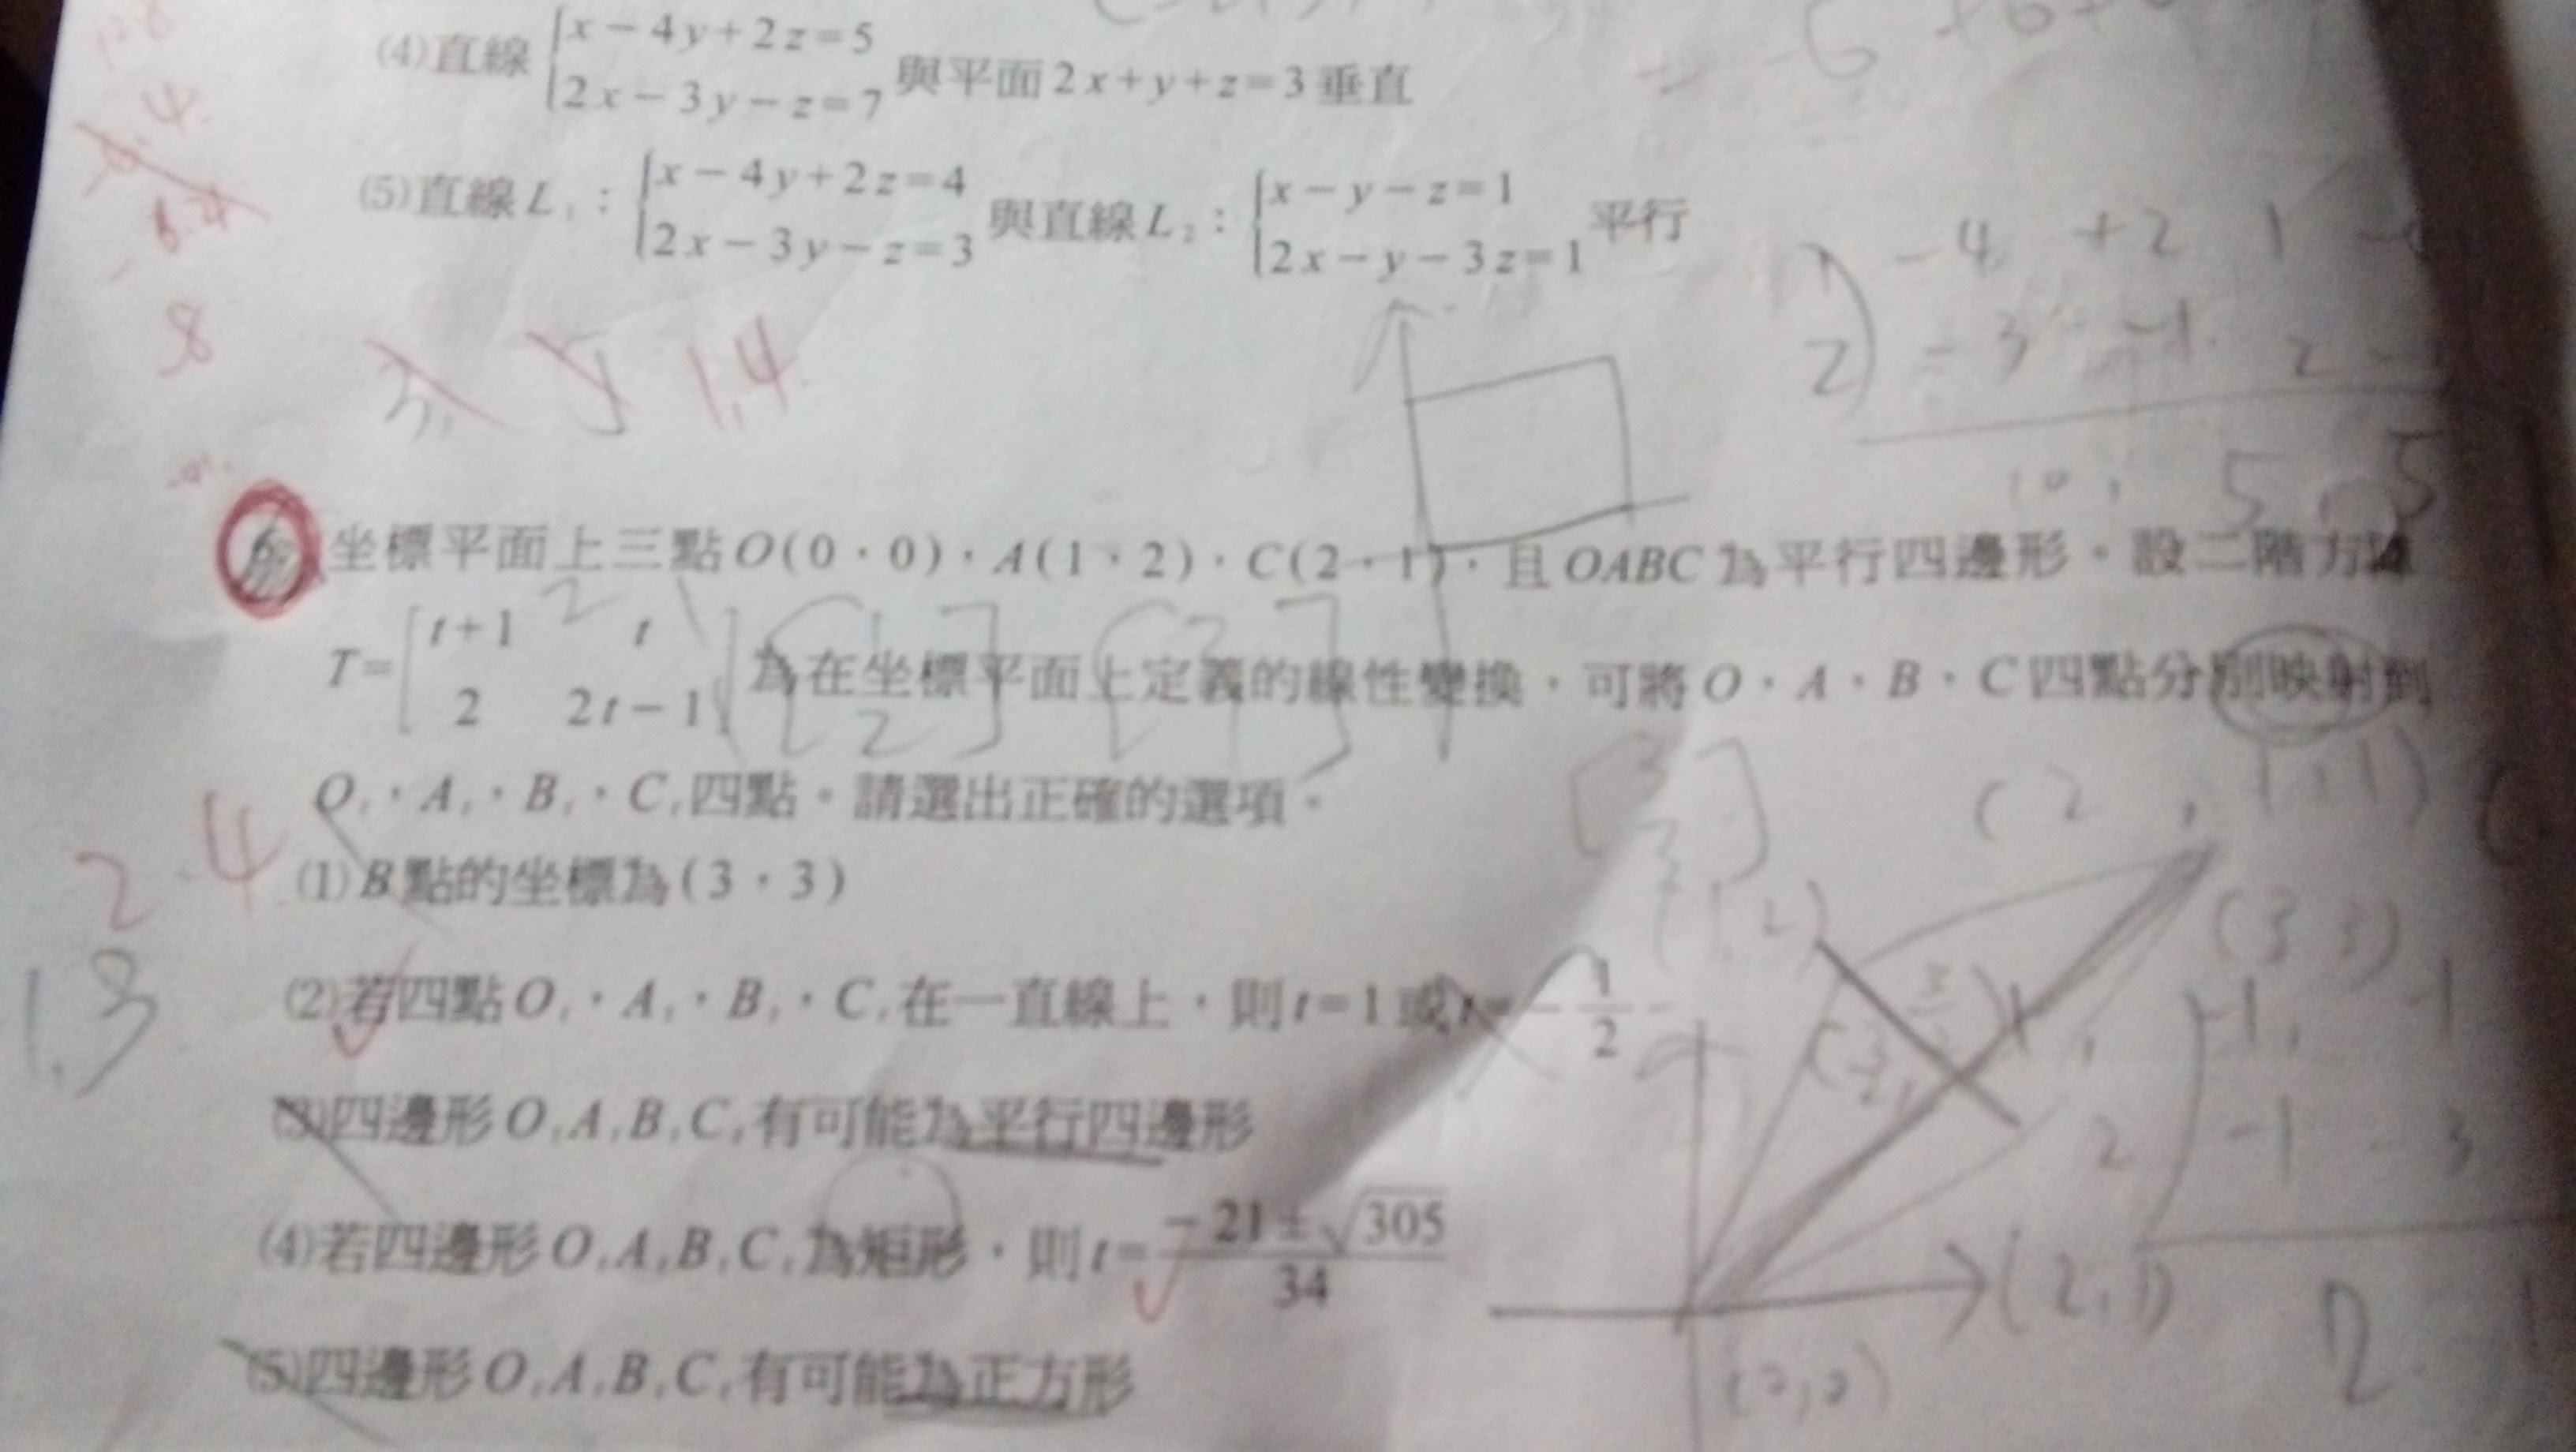 (4)直線 {x－4y＋2z＝5
2x－3y－z＝7 與平面2x＋y＋z＝3垂直
(5)直線L₁：{x－4y＋2z＝4
2x－3y－z＝3 與直線L₂：{x－y－z＝1
2x－y－3z＝1 平行
1,4
坐標平面上三點O(0,0),A(1,2),C(2,1),且OABC為平行四邊形。設二階方陣
T＝[t＋1 t
2 2t－1]為在坐標平面上定義的線性變換,可將O、A、B、C四點分別映射到
O₁、A₁、B₁、C₁四點。請選出正確的選項。
(1)B點的坐標為(3,3)
(2)若四點O₁、A₁、B₁、C₁在一直線上,則t＝1或t＝－1/2
(3)四邊形O₁A₁B₁C₁有可能為平行四邊形
(4)若四邊形O₁A₁B₁C₁為矩形,則t＝(－21±√305)/34
(5)四邊形O₁A₁B₁C₁有可能為正方形
2.4
1.3
8
－4 ＋2 1
2 －3 －1 2
10, 5, 5
[1
2]
[2
1]
[3
3]
(1,2)
(3,3)
(2,1)